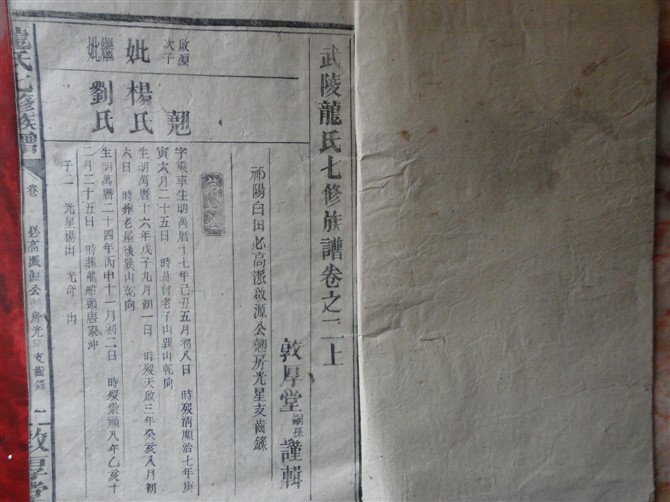 武陵龍氏七修族譜卷之二上
敦厚堂嗣孫謹輯
祁陽白田必高派啟源公翹房光星支齒錄
啟源次子
翹
字乘車生明萬曆十七年己丑五月初八日 時歿清順治七年庚
寅六月二十五日 時葬 老子山巽山乾向
妣
楊氏
生明萬曆十六年戊子九月初一日 時歿天啟三年癸亥八月初
六日 時葬老屋後巽山乾向
繼妣
劉氏
生明萬曆二十四年丙申十一月初二日 時歿崇禎八年乙亥十
二月二十五日 時葬 唐家沖
子二 光星楊出 光奇 出
龍氏七修族譜
卷
必高派啟源公 房光 支齒錄
二敦厚堂